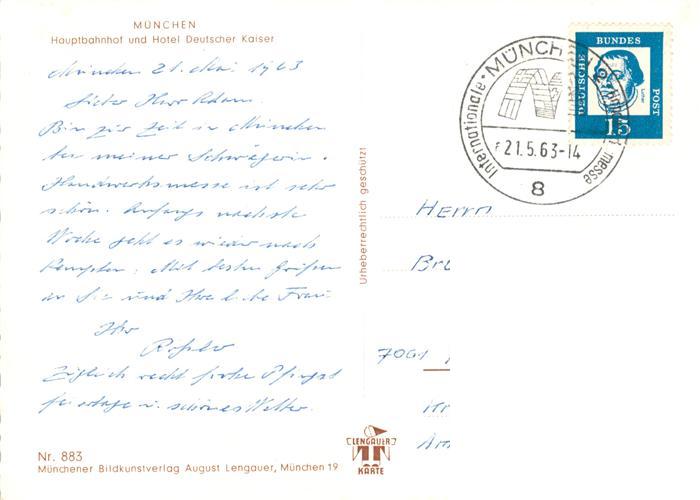 MÜNCHEN
Hauptbahnhof und Hotel Deutscher Kaiser
München 21. Mai 1963
Lieber Herr Adam.
Bin zur Zeit in München
bei meiner Schwägerin.
Handwerksmesse ist sehr
schön. Anfangs nächste
Woche geht es wieder nach
Kempten. Mit besten Grüßen
an Sie und Ihre liebe Frau.
Ihr
Zugleich recht frohe Pfingst
feiertage u. schönes Wetter.
Nr. 883
Münchener Bildkunstverlag August Lengauer, München 19
Urheberrechtlich geschützt!
LENGAUER
KARTE
MÜNCH
Internationale
messe
21.5.63-14
8
DEUTSCHE
BUNDES
POST
15
Herrn
7001